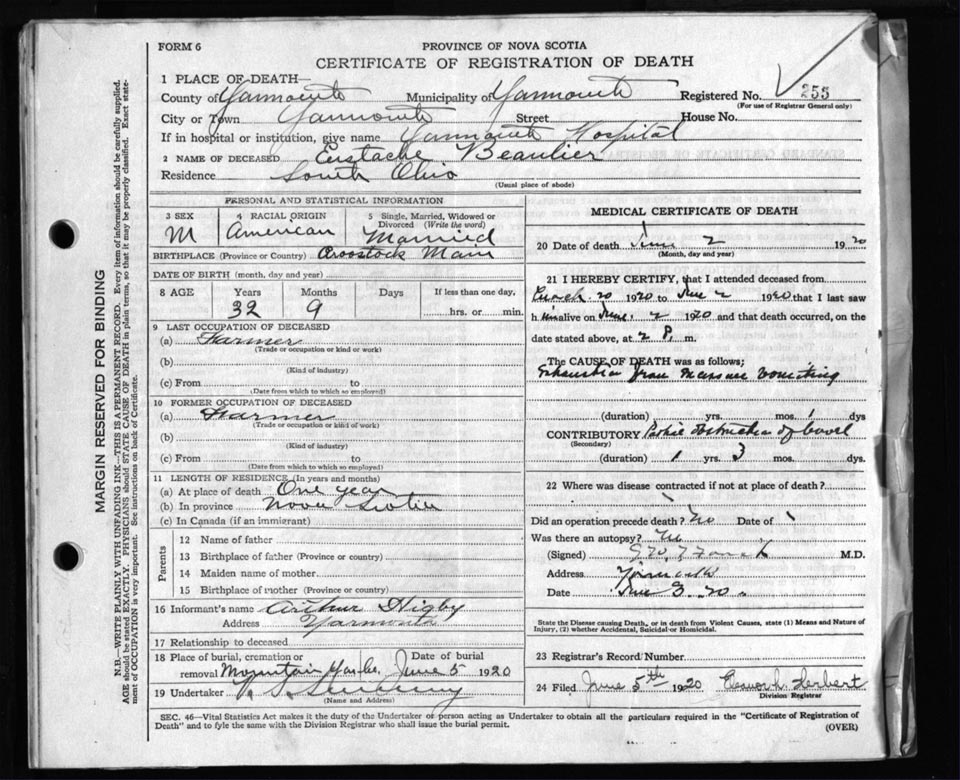 FORM 6
PROVINCE OF NOVA SCOTIA
CERTIFICATE OF REGISTRATION OF DEATH
1 PLACE OF DEATH—
County of Yarmouth Municipality of Yarmouth Registered No. 255
(For use of Registrar General only)
City or Town Yarmouth Street House No.
If in hospital or institution, give name Yarmouth Hospital
2 NAME OF DECEASED Eustache Beaulier
Residence South Ohio
(Usual place of abode)
PERSONAL AND STATISTICAL INFORMATION
3 SEX
M
4 RACIAL ORIGIN
American
5 Single, Married, Widowed or Divorced (Write the word)
Married
BIRTHPLACE (Province or Country) Aroostock Main
DATE OF BIRTH (month, day and year)
8 AGE Years Months Days If less than one day,
32 9 hrs. or min.
9 LAST OCCUPATION OF DECEASED
(a) Farmer
(Trade or occupation or kind or work)
(b)
(Kind of industry)
(c) From to
(Date from which to which so employed)
10 FORMER OCCUPATION OF DECEASED
(a) Farmer
(Trade or occupation or kind of work)
(b)
(Kind of industry)
(c) From to
(Date from which to which so employed)
11 LENGTH OF RESIDENCE (In years and months)
(a) At place of death One year
(b) In province Nova Scotia
(c) In Canada (if an immigrant)
Parents
12 Name of father
13 Birthplace of father (Province or country)
14 Maiden name of mother
15 Birthplace of mother (Province or country)
16 Informant's name Arthur Higby
Address Yarmouth
17 Relationship to deceased
18 Place of burial, cremation or Date of burial
removal Mountain June 5 1920
19 Undertaker V. S. Sweeny
(Name and Address)
MEDICAL CERTIFICATE OF DEATH
20 Date of death June 2 1920
(Month, day and year)
21 I HEREBY CERTIFY, that I attended deceased from
20 1920 to June 2 1920 that I last saw
h him alive on June, 2 1920 and that death occurred, on the
date stated above, at 2 P. m.
The CAUSE OF DEATH was as follows;
Exhaustion from vomiting
(duration) yrs. mos. 1 dys
CONTRIBUTORY obstruction of bowel
(Secondary)
(duration) 1 yrs. 3 mos. dys.
22 Where was disease contracted if not at place of death?
Did an operation precede death? No Date of
Was there an autopsy? No
(Signed) M.D.
Address Yarmouth
Date June 3. 20.
State the Disease causing Death, or in death from Violent Causes, state (1) Means and Nature of
Injury, (2) whether Accidental, Suicidal or Homicidal.
23 Registrar's Record Number
24 Filed June 5th 1920 Herbert
Division Registrar
SEC. 46—Vital Statistics Act makes it the duty of the Undertaker or person acting as Undertaker to obtain all the particulars required in the "Certificate of Registration of
Death" and to fyle the same with the Division Registrar who shall issue the burial permit.
(OVER)
MARGIN RESERVED FOR BINDING
N.B.—WRITE PLAINLY WITH UNFADING INK—THIS IS A PERMANENT RECORD. Every item of information should be carefully supplied.
AGE should be stated EXACTLY. PHYSICIANS should STATE CAUSE OF DEATH in plain terms, so that it may be properly classified. Exact state-
ment of OCCUPATION is very important. See instructions on back of Certificate.